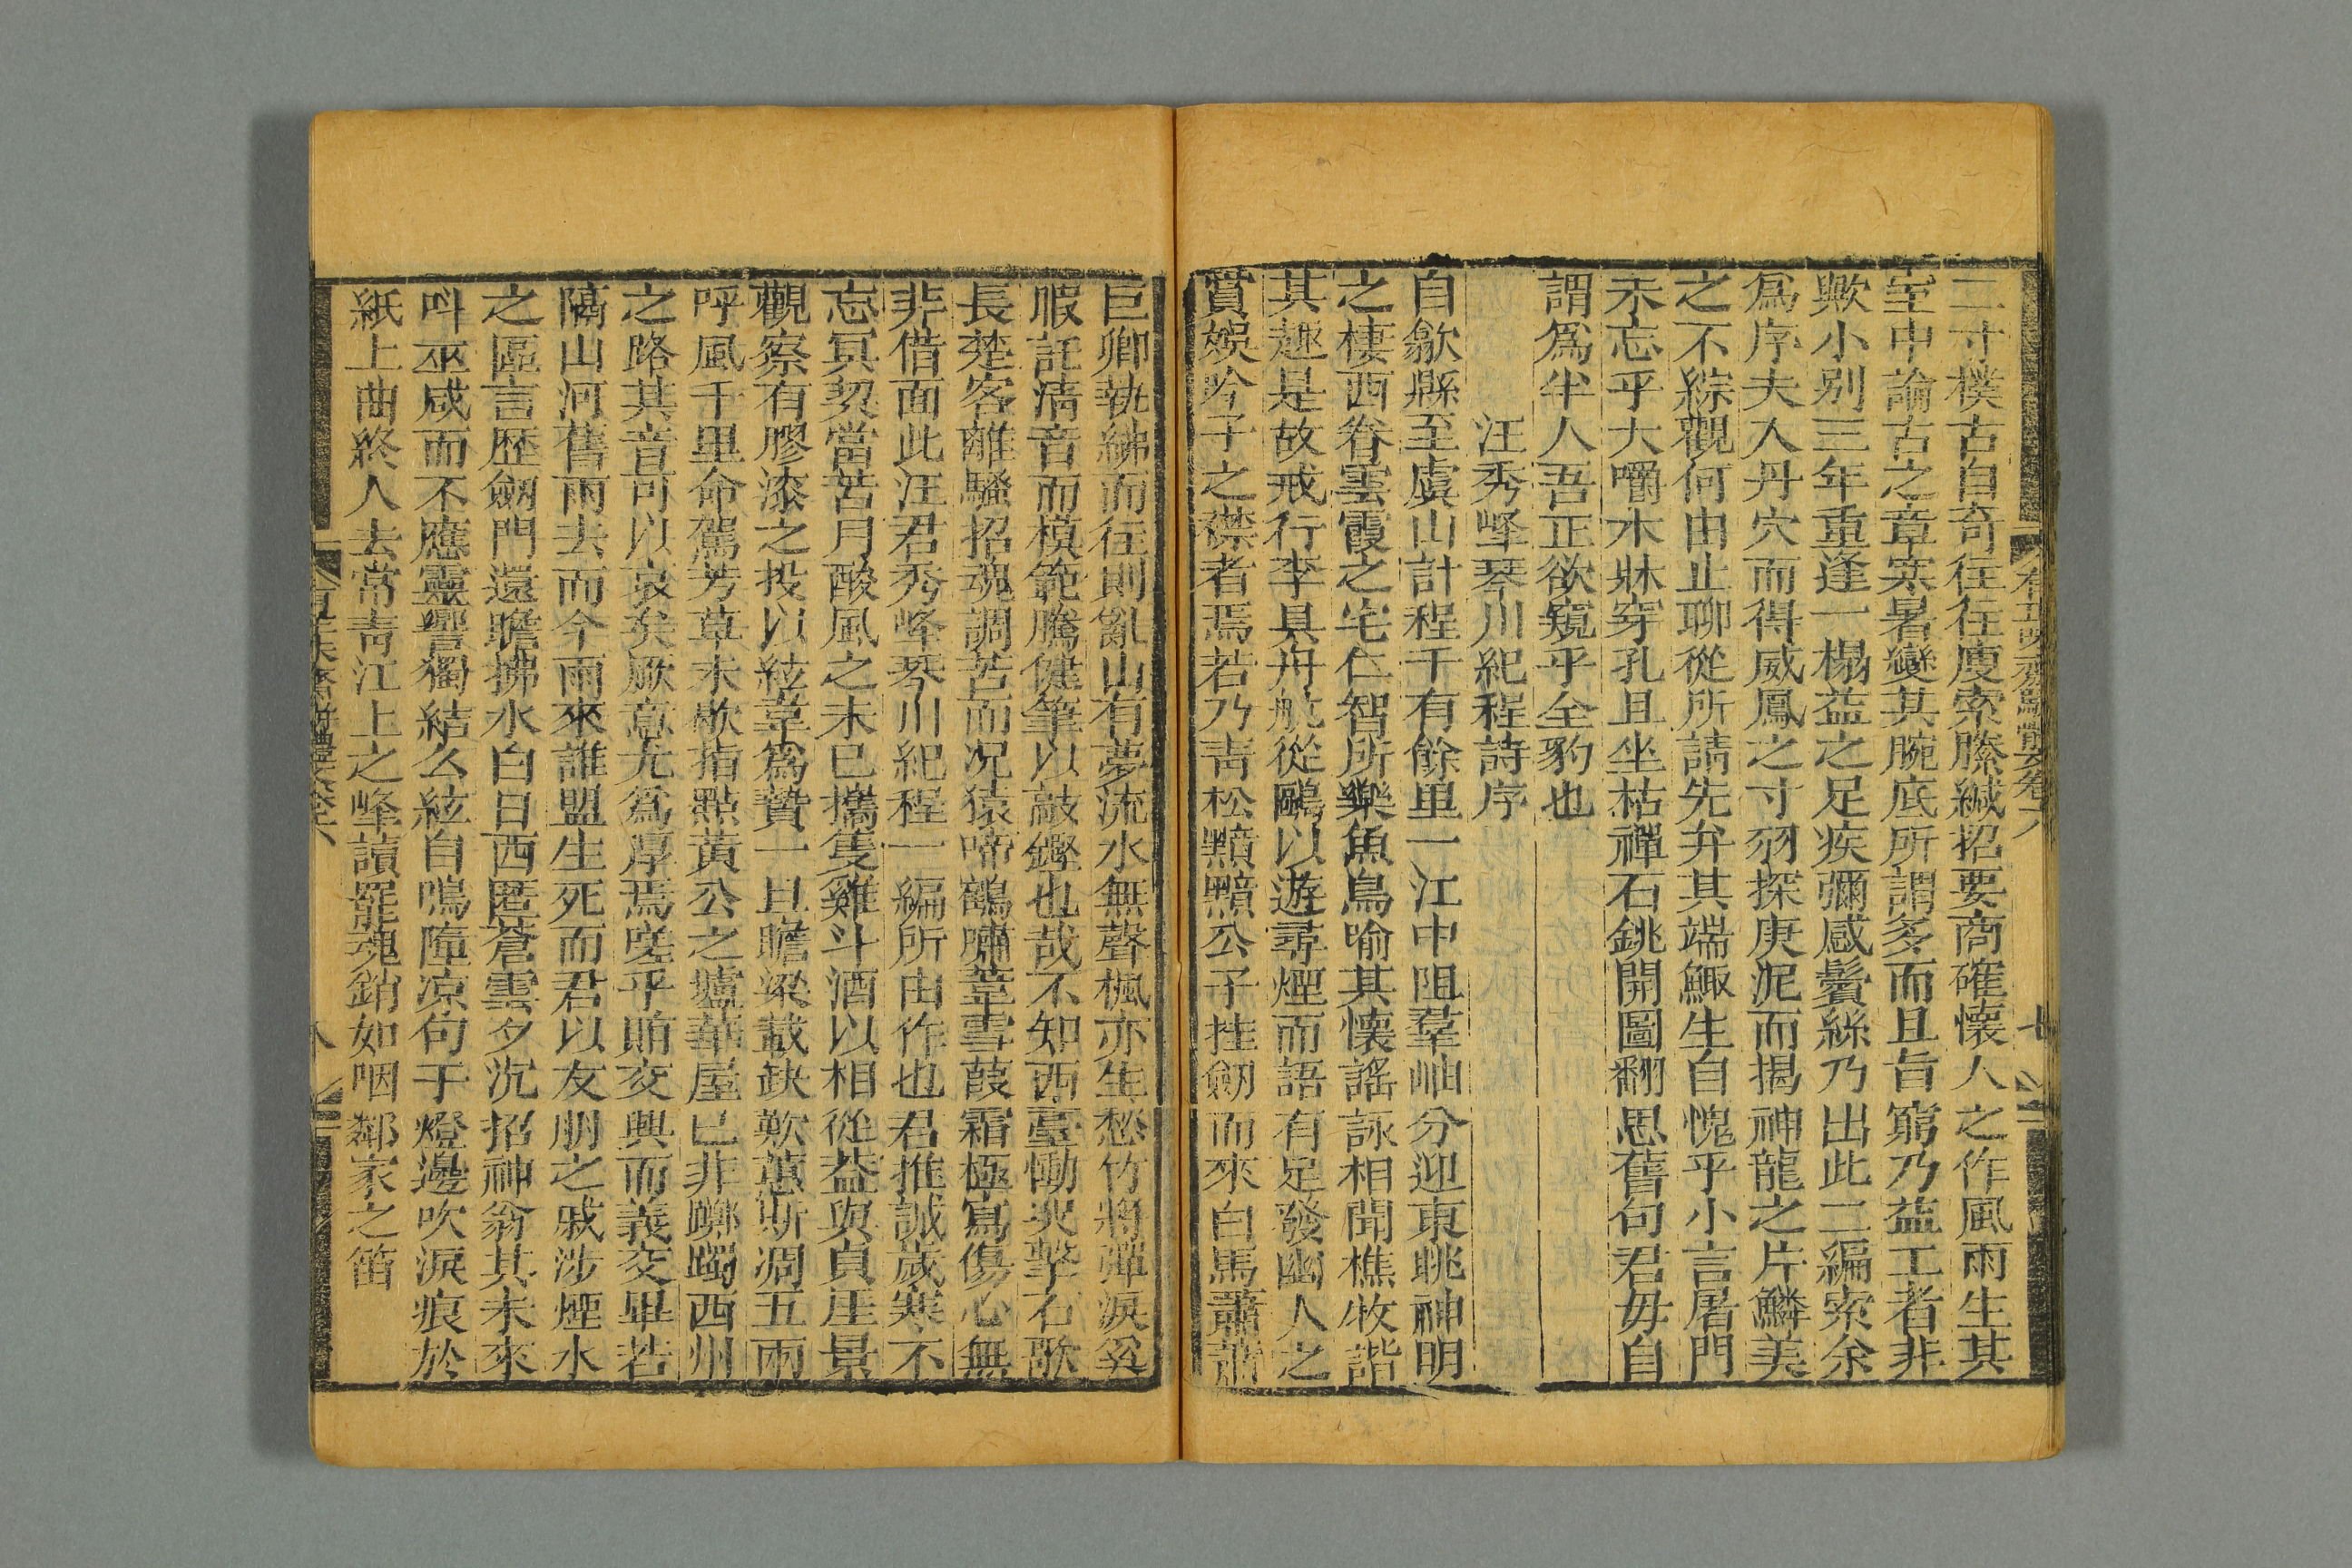 有正味齋駢體文卷六
七
二寸樸古自奇往往廋索縢緘招要商確懷人之作風雨生其
室中論古之章寒暑變其腕底所謂多而且旨窮乃益工者非
歟小别三年重逢一榻益之足疾彌感鬢絲乃出此二編索余
爲序夫入丹穴而得威鳳之寸羽探庚泥而揭神龍之片鱗美
之不綜觀何由止聊從所請先弁其端鯫生自愧乎小言屠門
未忘乎大嚼木牀穿孔且坐枯禪石銚開圖翻思舊句君毋自
謂爲半人吾正欲窺乎全豹也
汪秀峰琴川紀程詩序
自歙縣至虞山計程千有餘里一江中阻羣岫分迎東眺神明
之棲西眷雲霞之宅仁智所樂魚鳥喻其懷謠詠相聞樵牧諧
其趣是故戒行李具舟航從鷗以遊尋煙而語有足發幽人之
賞娛吟子之襟者焉若乃青松黯黯公子挂劒而來白馬蕭蕭
巨卿執紼而往則亂山有夢流水無聲楓亦生愁竹將彈淚奚
暇託清音而模範騰健筆以敲鏗也哉不知西臺慟哭擊石歌
長楚客離騷招魂調苦而况猿啼鶴嘯葦雪葭霜極寫傷心無
非借面此汪君秀峰琴川紀程一編所由作也君推誠歲寒不
忘冥契當苦月酸風之未已攜隻雞斗酒以相從益與貞厓景
觀察有膠漆之投以絃韋爲贄一旦瞻梁載缺歎蕙斯凋五兩
呼風千里命駕芳草未歇指點黃公之壚華屋已非躑躅西州
之路其音可以哀矣厥意尤爲厚焉嗟乎賄交興而義交畢若
隔山河舊雨去而今雨來誰盟生死而君以友朋之戚涉煙水
之區言歷劒門還瞻拂水白日西匿蒼雲夕沉招神翁其未來
呌巫咸而不應靈響獨結么絃自鳴墮凉句于燈邊吹淚痕於
紙上曲終人去常青江上之峰讀罷魂銷如咽鄰家之笛
八